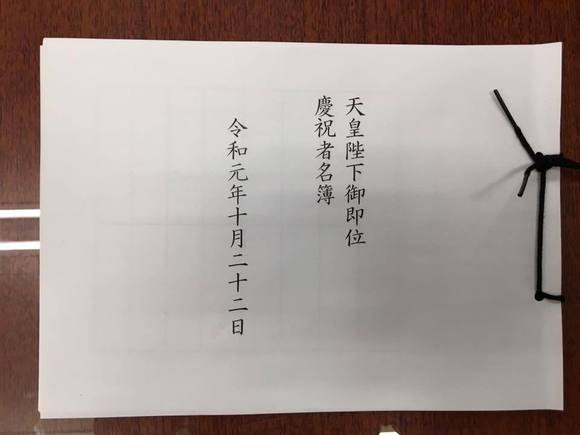 天皇陛下御即位
慶祝者名簿
令和元年十月二十二日